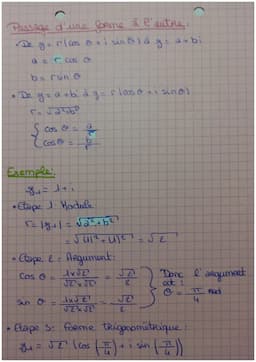 Passage d'une forme à l'autre:
• De z = r(cos θ + i sin θ) à z = a+bi
a = r cos θ
b = r sin θ
• De z = a+bi à z = r(cos θ + i sin θ)
r = √a²+b²
{ cos θ = a/r
cos θ = b/r
Exemple:
z₁ = 1+i
• Etape 1 Module
r = |z₁| = √a²+b²
= √(1)²+(1)² = √2
• Etape 2: Argument:
cos θ = 1×√2/√2×√2 = √2/2 } Donc l'argument est:
sin θ = 1×√2/√2×√2 = √2/2 θ = π/4 rad
• Etape 3: forme trigonométrique:
z₁ = √2 (cos (π/4) + i sin (π/4))